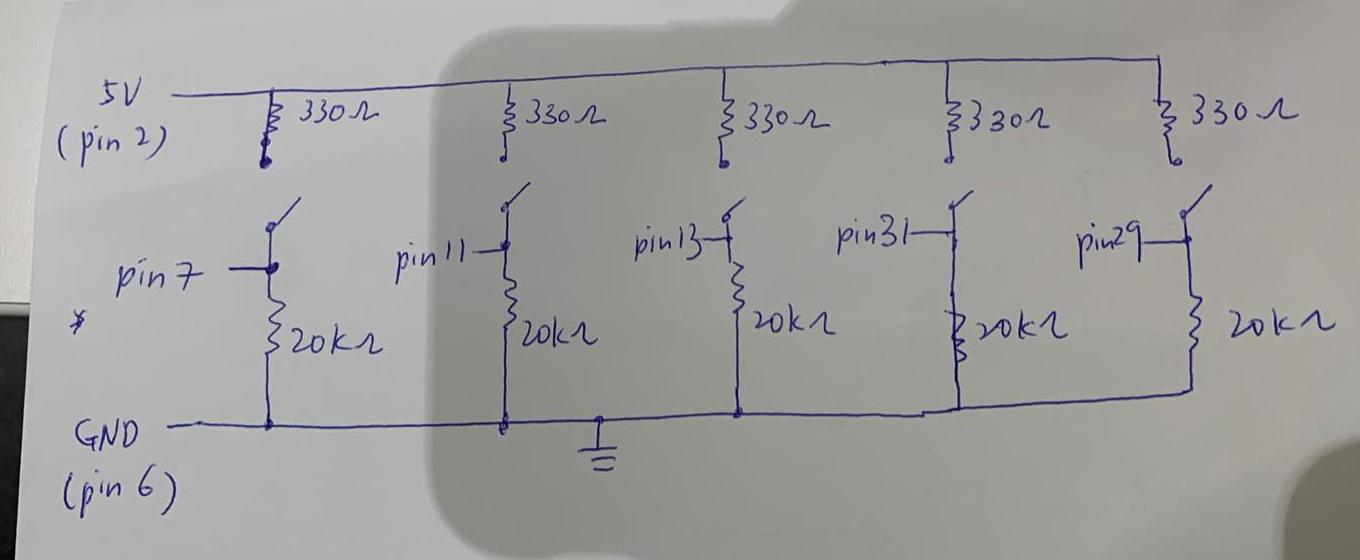 5V
(pin 2)
330Ω
330Ω
330Ω
330Ω
330Ω
pin 7
pin 11
pin 13
pin 31
pin 29
*
20kΩ
20kΩ
20kΩ
20kΩ
20kΩ
GND
(pin 6)